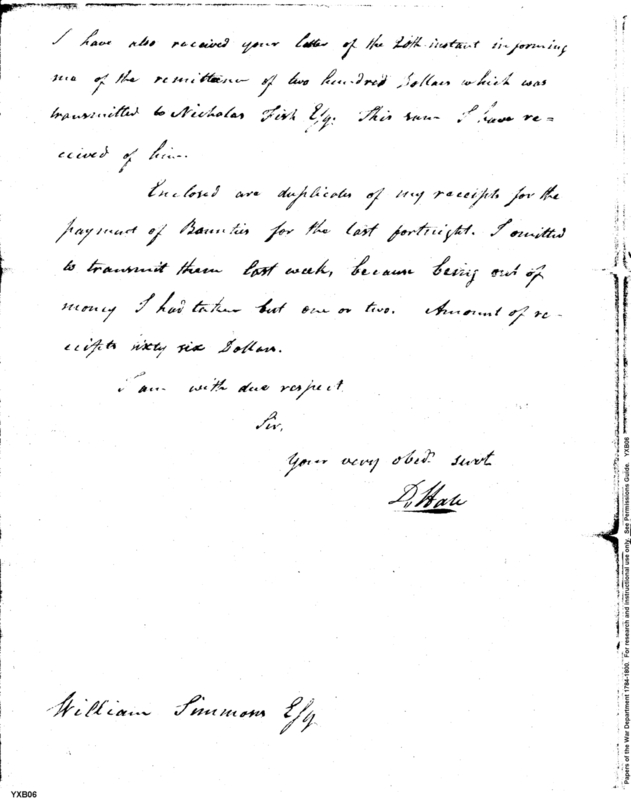 I have also received your letter of the 20th instant informing
me of the remittance of two hundred Dollars which was
transmitted to Nicholas Fish Esq. This sum I have re=
ceived of him.
Enclosed are duplicates of my receipts for the
payment of Bounties for the last fortnight. I omitted
to transmit them last week, because being out of
money I had taken but one or two. Amount of re-
ceipts sixty six Dollars.
I am with due respect
Sir,
Your very obedt servt
D. Hale
William Simmons Esq
YXB06
Papers of the War Department 1784-1800. For research and instructional use only. See Permissions Guide. YXB06